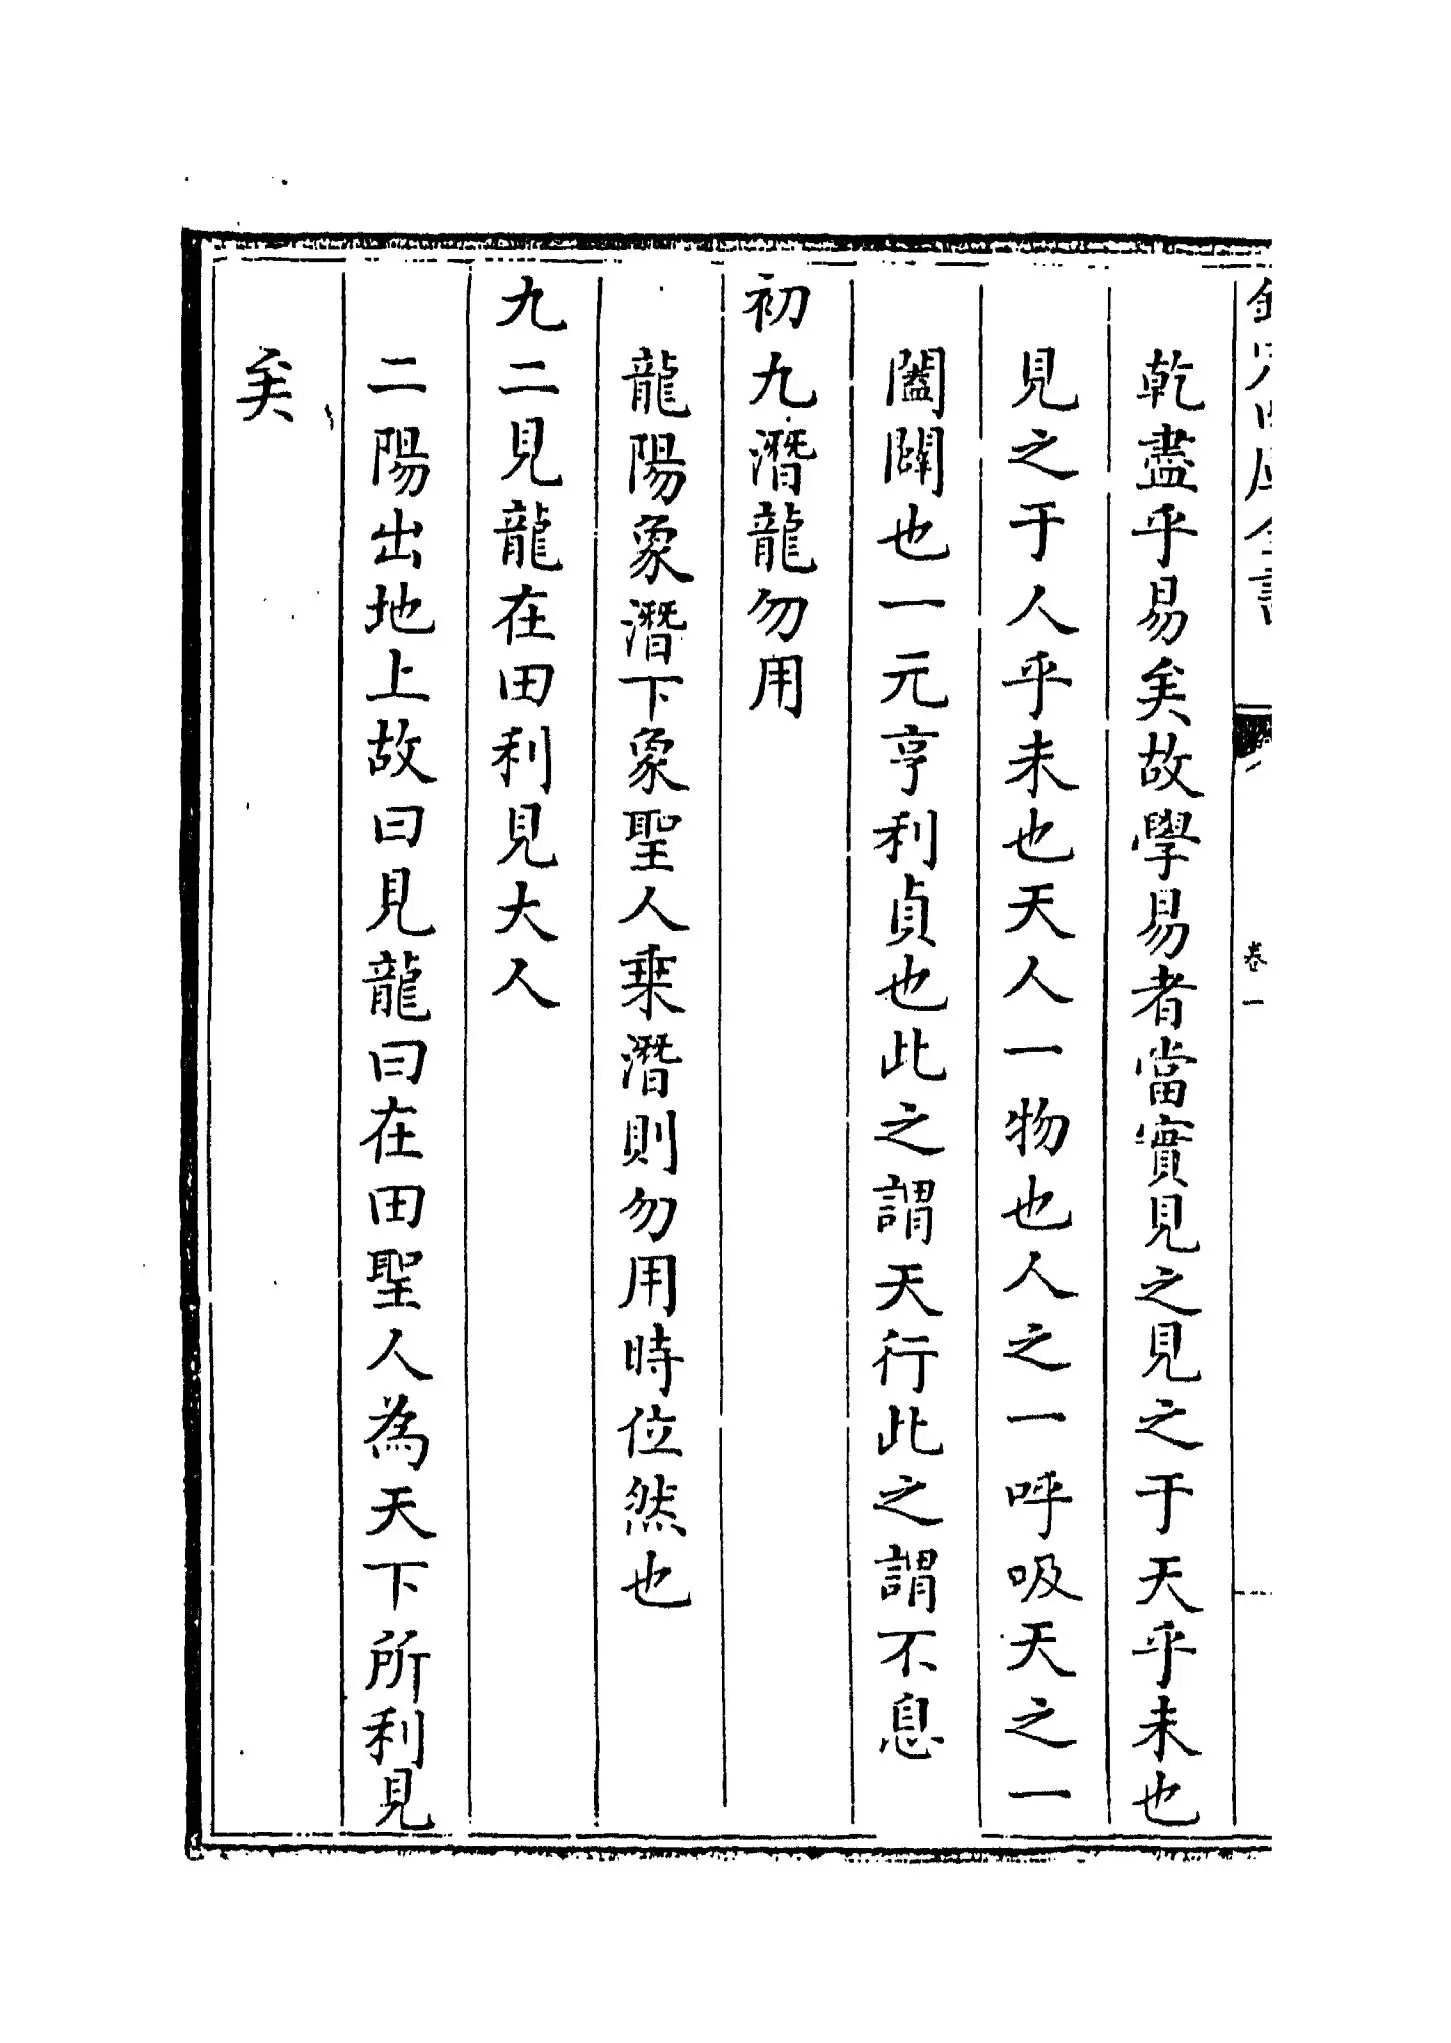 卷一
乾盡乎易矣故學易者當實見之見之于天乎未也
見之于人乎未也天人一物也人之一呼吸天之一
闔闢也一元亨利貞也此之謂天行此之謂不息
初九潛龍勿用
龍陽象潛下象聖人乗潛則勿用時位然也
九二見龍在田利見大人
二陽出地上故曰見龍曰在田聖人為天下所利見
矣